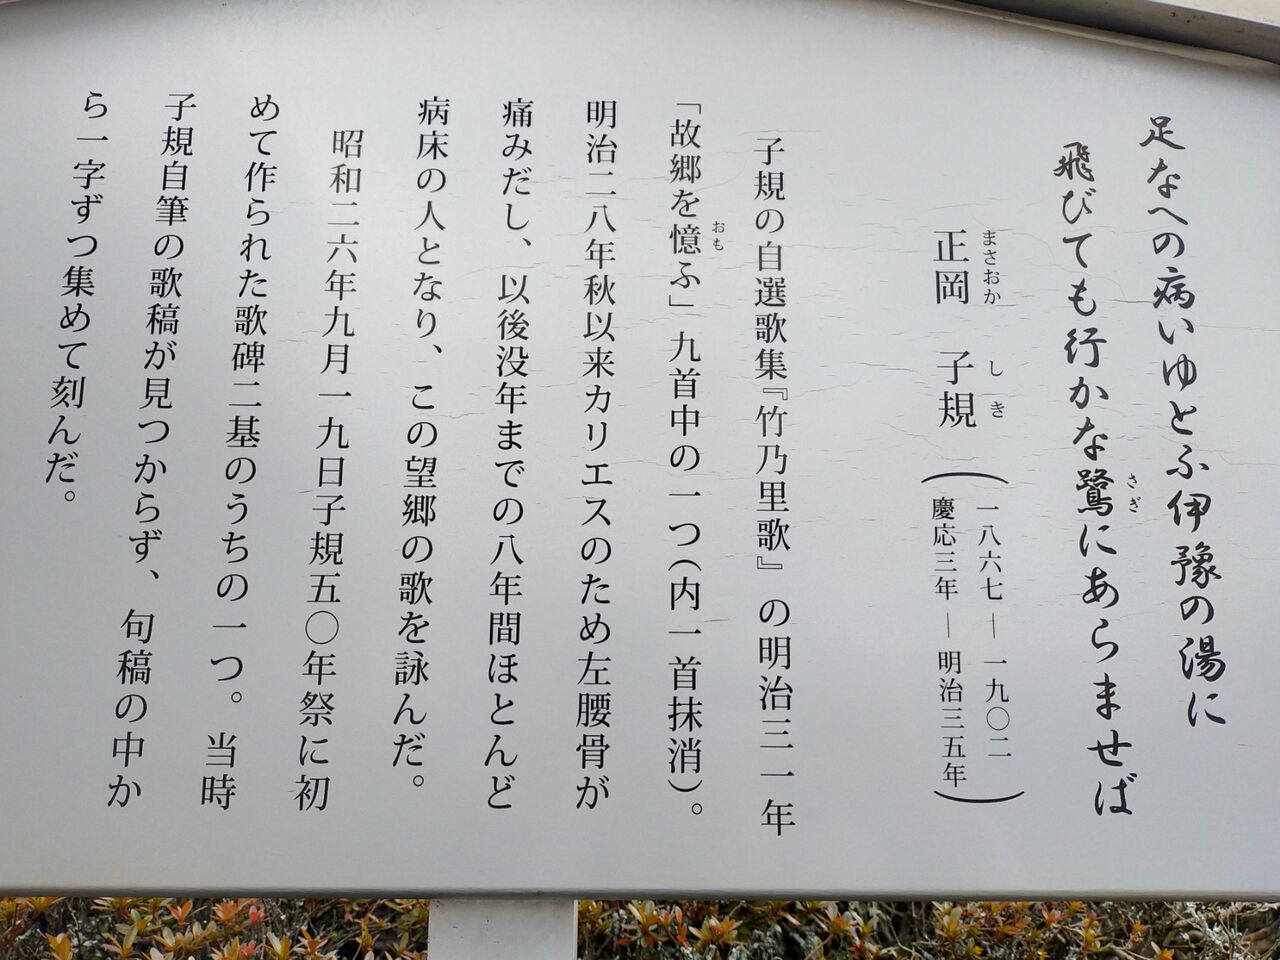 足なへの病いゆとふ伊豫の湯に
飛びても行かな鷺にあらませば
さぎ
正岡 子規
まさおか しき
(一八六七―一九〇二
慶応三年―明治三五年)
子規の自選歌集『竹乃里歌』の明治三一年
「故郷を憶ふ」九首中の一つ(内一首抹消)。
おも
明治二八年秋以来カリエスのため左腰骨が
痛みだし、以後没年までの八年間ほとんど
病床の人となり、この望郷の歌を詠んだ。
昭和二六年九月一九日子規五〇年祭に初
めて作られた歌碑二基のうちの一つ。当時
子規自筆の歌稿が見つからず、句稿の中か
ら一字ずつ集めて刻んだ。